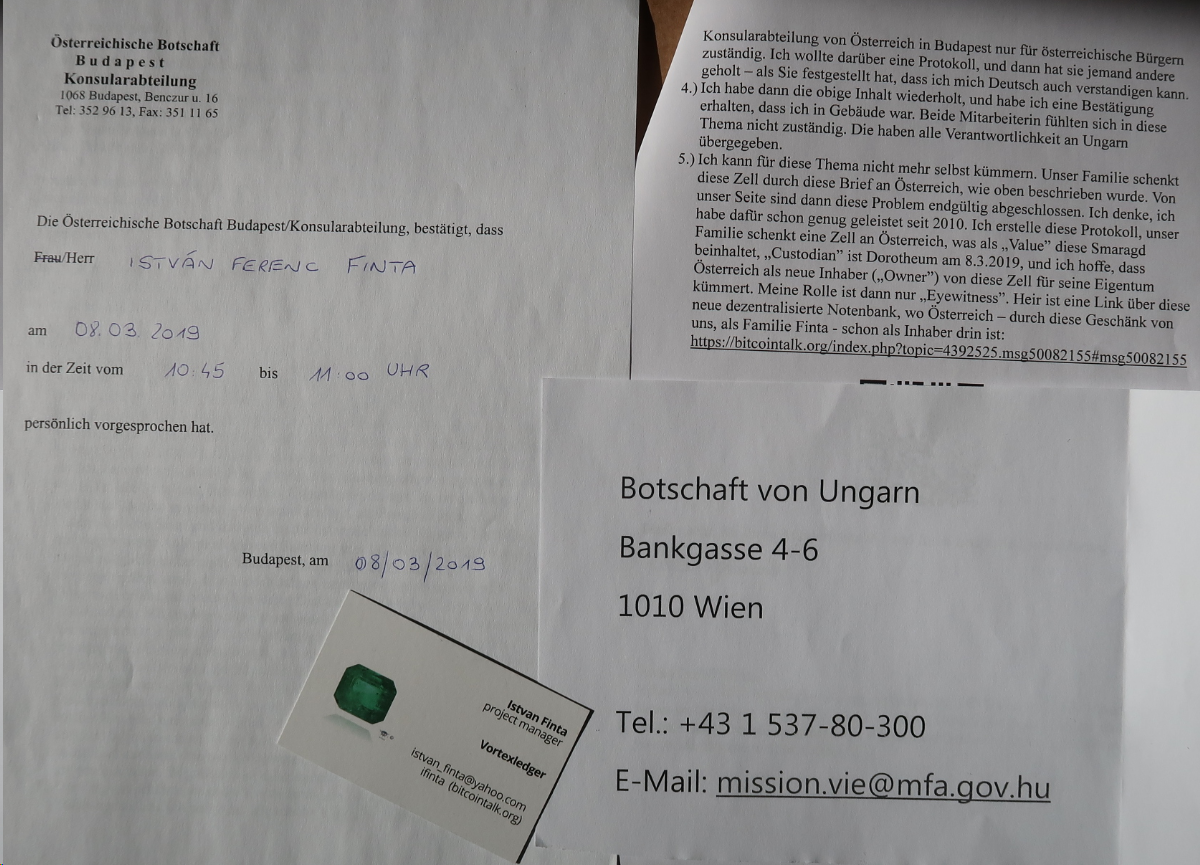 Österreichische Botschaft
Budapest
Konsularabteilung
1068 Budapest, Benczur u. 16
Tel: 352 96 13, Fax: 351 11 65
Die Österreichische Botschaft Budapest/Konsularabteilung, bestätigt, dass
Frau/Herr ISTVÁN FERENC FINTA
am 08.03.2019
in der Zeit vom 10:45 bis 11:00 UHR
persönlich vorgesprochen hat.
Budapest, am 08/03/2019
Konsularabteilung von Österreich in Budapest nur für österreichische Bürgern
zuständig. Ich wollte darüber eine Protokoll, und dann hat sie jemand andere
geholt – als Sie festgestellt hat, dass ich mich Deutsch auch verstandigen kann.
4.) Ich habe dann die obige Inhalt wiederholt, und habe ich eine Bestätigung
erhalten, dass ich in Gebäude war. Beide Mitarbeiterin fühlten sich in diese
Thema nicht zuständig. Die haben alle Verantwortlichkeit an Ungarn
übergegeben.
5.) Ich kann für diese Thema nicht mehr selbst kümmern. Unser Familie schenkt
diese Zell durch diese Brief an Österreich, wie oben beschrieben wurde. Von
unser Seite sind dann diese Problem endgültig abgeschlossen. Ich denke, ich
habe dafür schon genug geleistet seit 2010. Ich erstelle diese Protokoll, unser
Familie schenkt eine Zell an Österreich, was als „Value” diese Smaragd
beinhaltet, „Custodian” ist Dorotheum am 8.3.2019, und ich hoffe, dass
Österreich als neue Inhaber („Owner”) von diese Zell für seine Eigentum
kümmert. Meine Rolle ist dann nur „Eyewitness”. Heir ist eine Link über diese
neue dezentralisierte Notenbank, wo Österreich – durch diese Geschänk von
uns, als Familie Finta - schon als Inhaber drin ist:
https://bitcointalk.org/index.php?topic=4392525.msg50082155#msg50082155
Botschaft von Ungarn
Bankgasse 4-6
1010 Wien
Tel.: +43 1 537-80-300
E-Mail: mission.vie@mfa.gov.hu
Istvan Finta
project manager
Vortexledger
istvan_finta@yahoo.com
ifinta (bitcointalk.org)